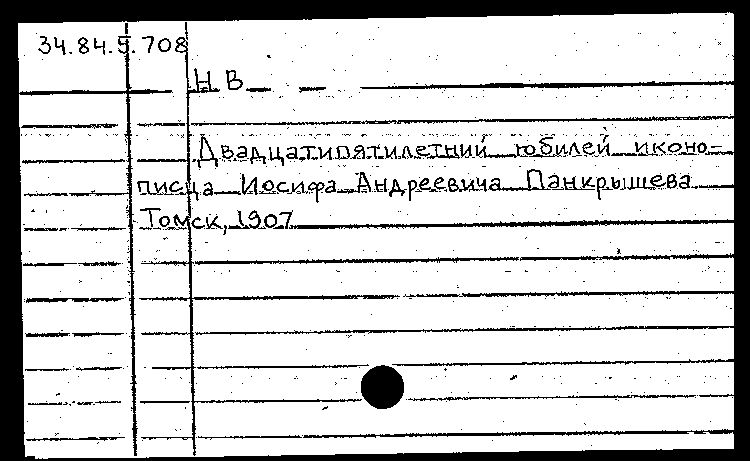 34.84.5.708
Н. В.
Двадцатипятилетний юбилей иконо-
писца Иосифа Андреевича Панкрышева
Томск, 1907